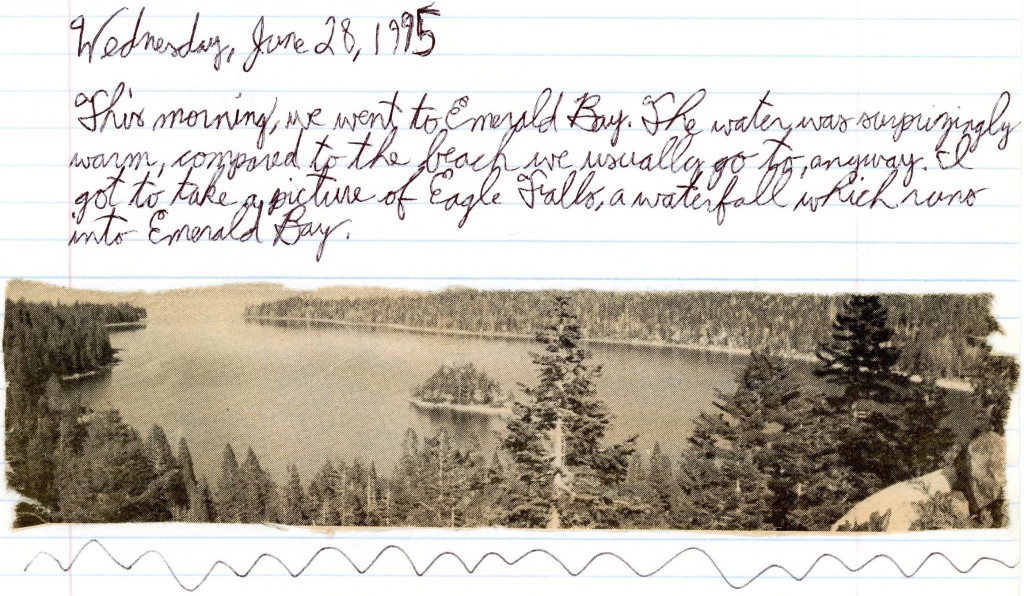 Wednesday, June 28, 1995
This morning, we went to Emerald Bay. The water was surprizingly
warm, compared to the beach we usually go to, anyway. I
got to take a picture of Eagle Falls, a waterfall which runs
into Emerald Bay.